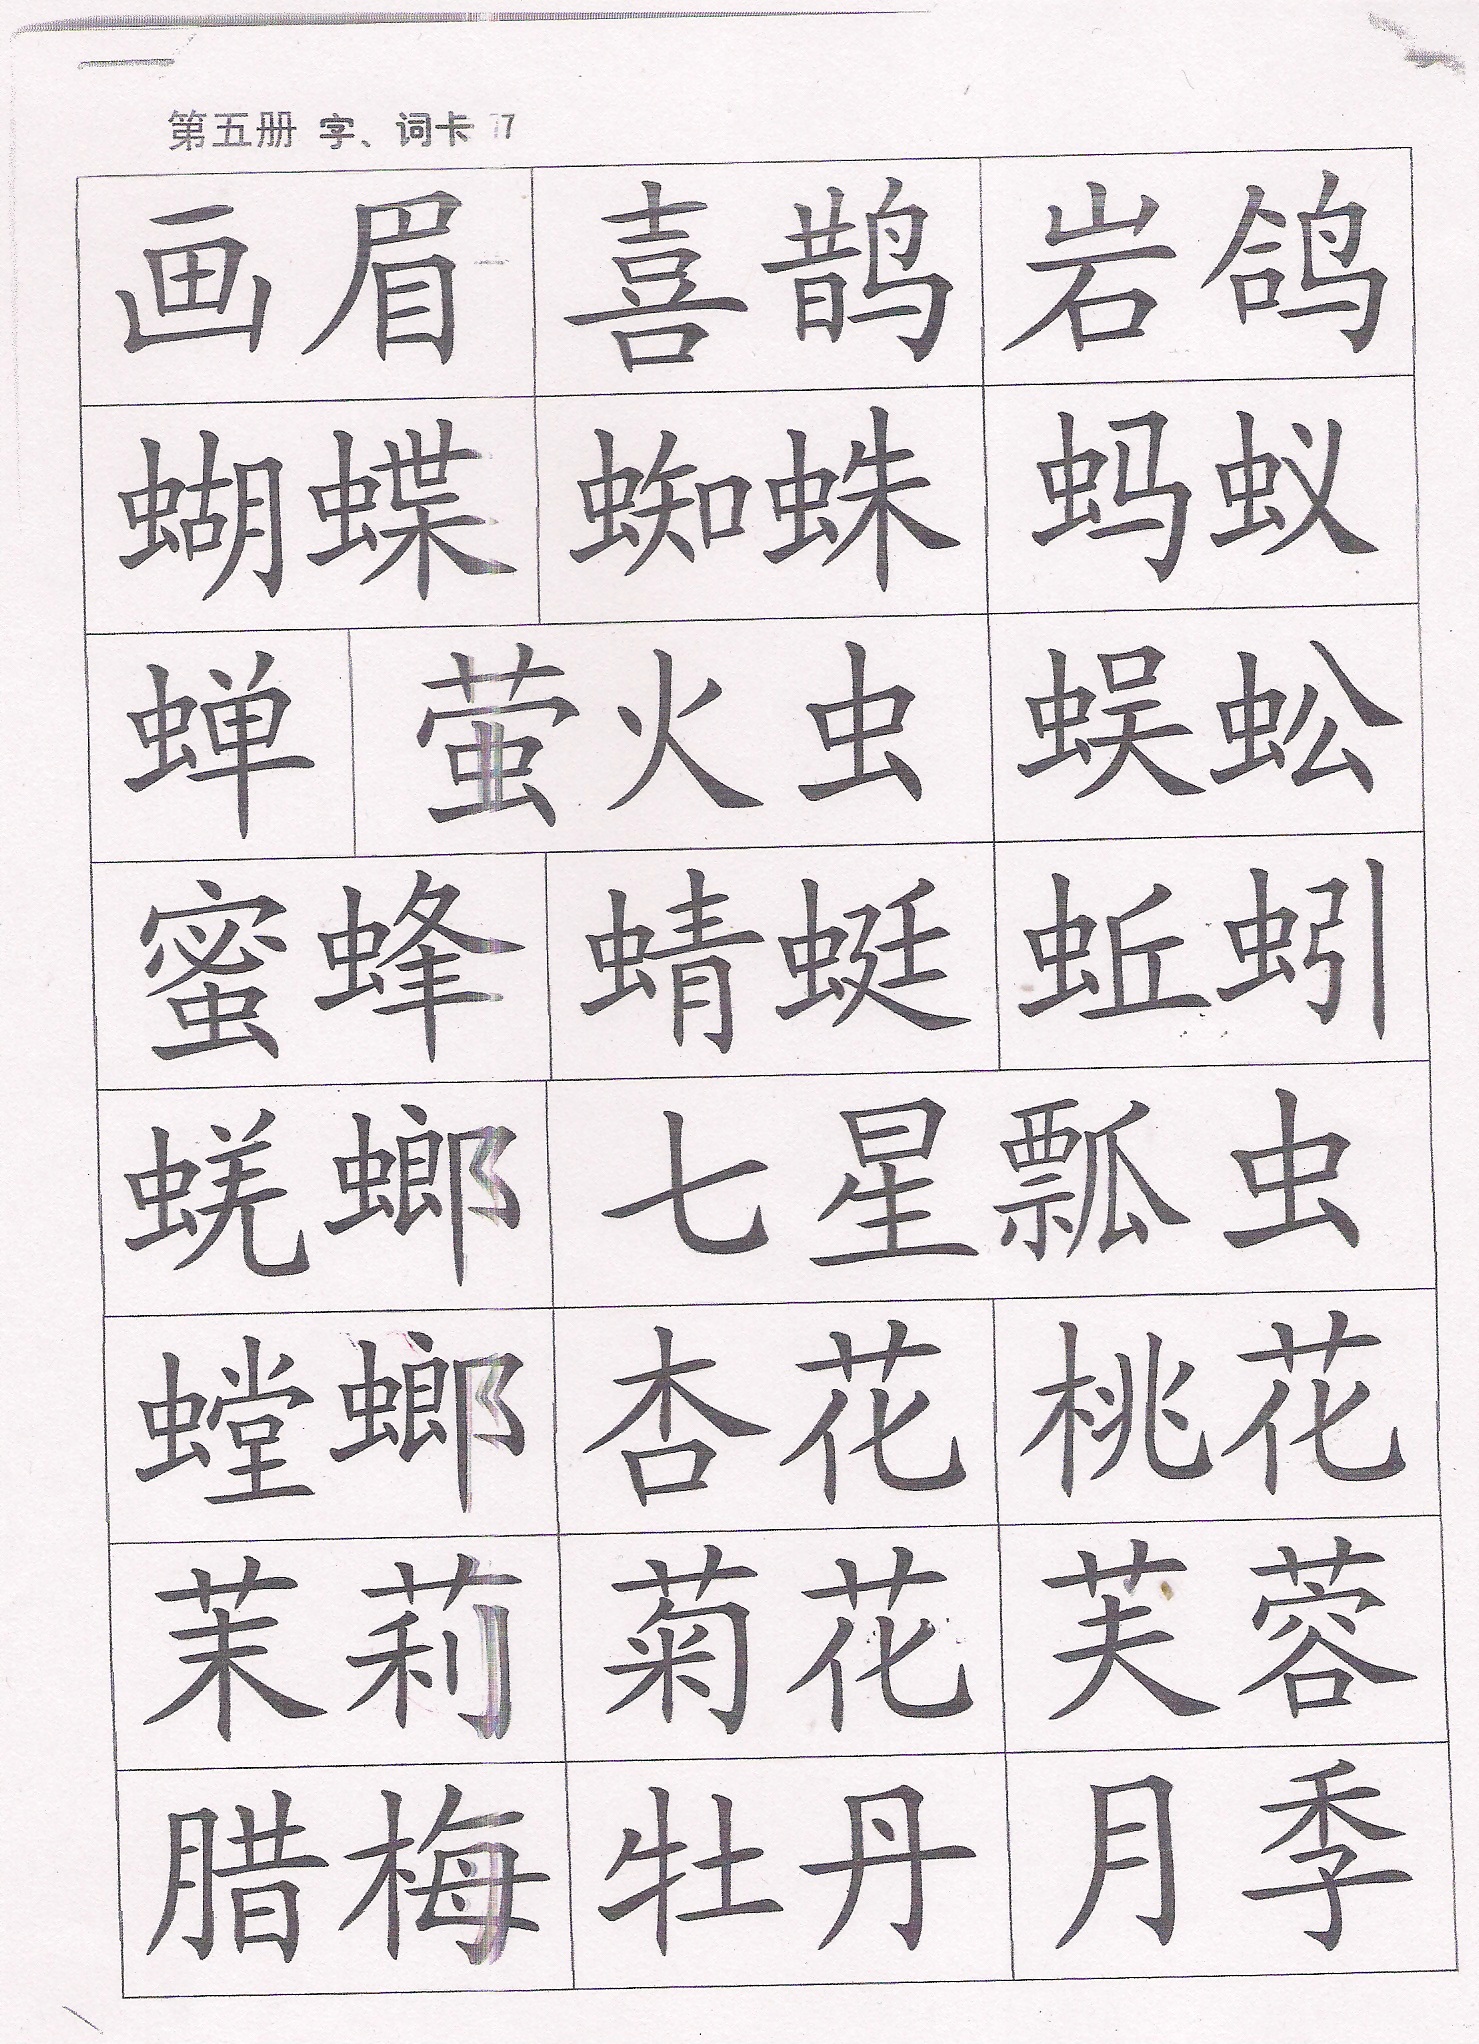 第五册 字、词卡 17
画眉 喜鹊 岩鸽
蝴蝶 蜘蛛 蚂蚁
蝉 萤火虫 蜈蚣
蜜蜂 蜻蜓 蚯蚓
蜣螂 七星瓢虫
螳螂 杏花 桃花
茉莉 菊花 芙蓉
腊梅 牡丹 月季